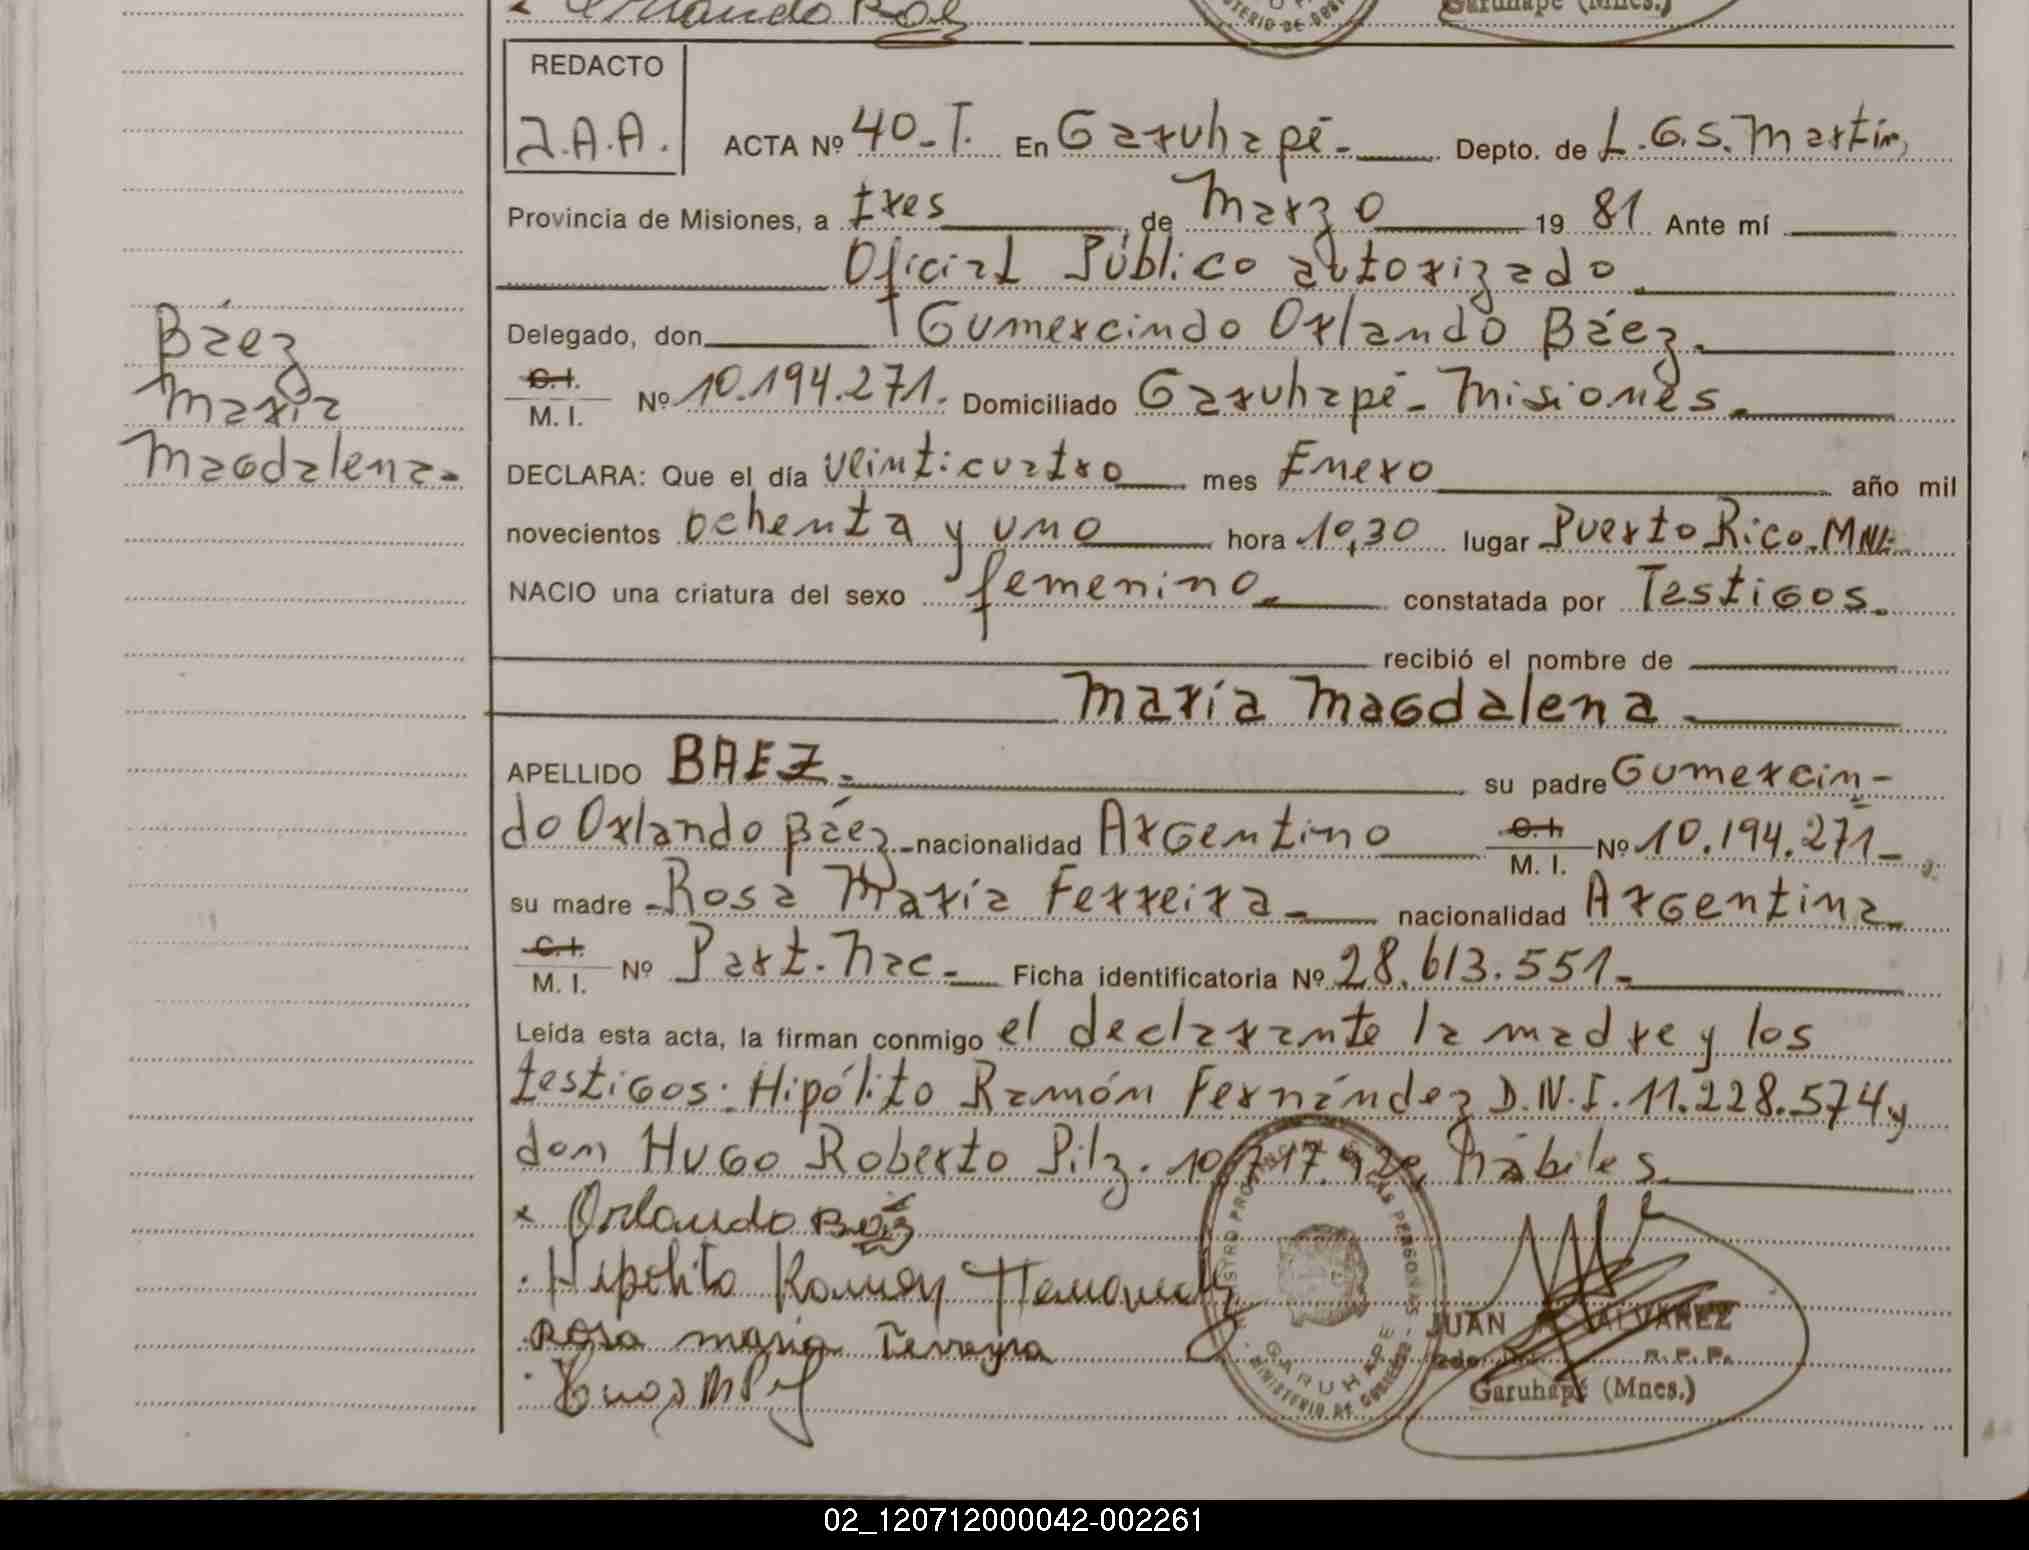 Orlando Báez
MINISTERIO DE GOBIERNO
Garuhapé (Mnes.)
REDACTO
J.A.A.
ACTA Nº 40-T. En Garuhapé. Depto. de L.G.S. Martín,
Provincia de Misiones, a tres de Marzo 19 81 Ante mí
Oficial Público autorizado
Delegado, don Gumercindo Orlando Báez.
C.I. M. I. Nº 10.194.271. Domiciliado Garuhapé - Misiones.
DECLARA: Que el día veinticuatro mes Enero año mil
novecientos ochenta y uno hora 10,30 lugar Puerto Rico. Mnes.
NACIO una criatura del sexo femenino. constatada por Testigos.
recibió el nombre de
María Magdalena
APELLIDO BAEZ. su padre Gumercin-
do Orlando Báez nacionalidad Argentino C.I. M. I. Nº 10.194.271
su madre Rosa María Ferreira nacionalidad Argentina
C.I. M. I. Nº Part. Nac. Ficha identificatoria Nº 28.613.551
Leída esta acta, la firman conmigo el declarante la madre y los
testigos: Hipólito Ramón Fernández D.N.I. 11.228.574 y
don Hugo Roberto Pilz. hábiles
Orlando Báez
Hipólito Ramón Fernandez
Rosa maria Ferreyra
REGISTRO PROVINCIAL DE LAS PERSONAS
GARUHAPE
MINISTERIO DE GOBIERNO
JUAN A. ALVAREZ
R.P.P.
Garuhapé (Mnes.)
Báez
María
Magdalena
02_120712000042-002261